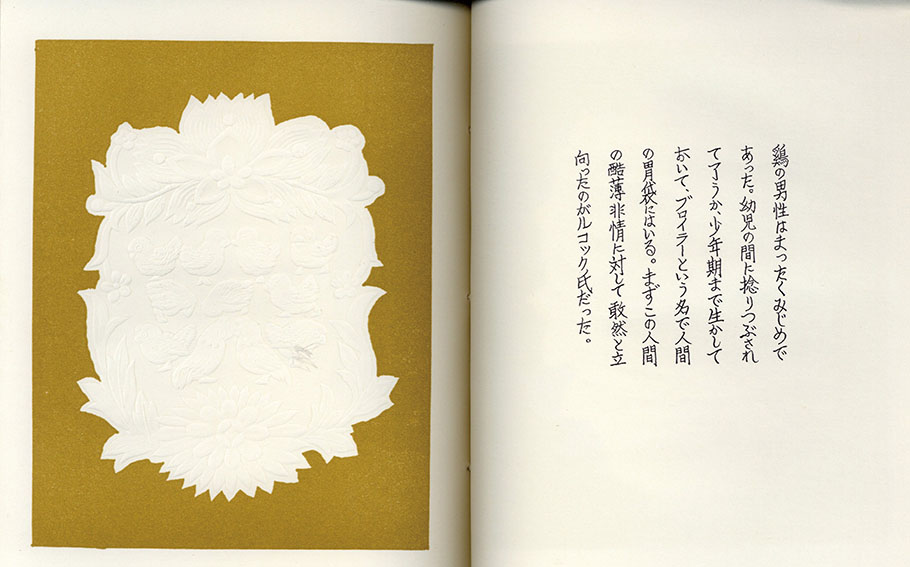 鶏の男性はまったくみじめで
あった。幼児の間に捻りつぶされ
て了うか、少年期まで生かして
おいて、ブロイラーという名で人間
の胃袋にはいる。まずこの人間
の酷薄非情に対して敢然と立
向ったのがルコック氏だった。